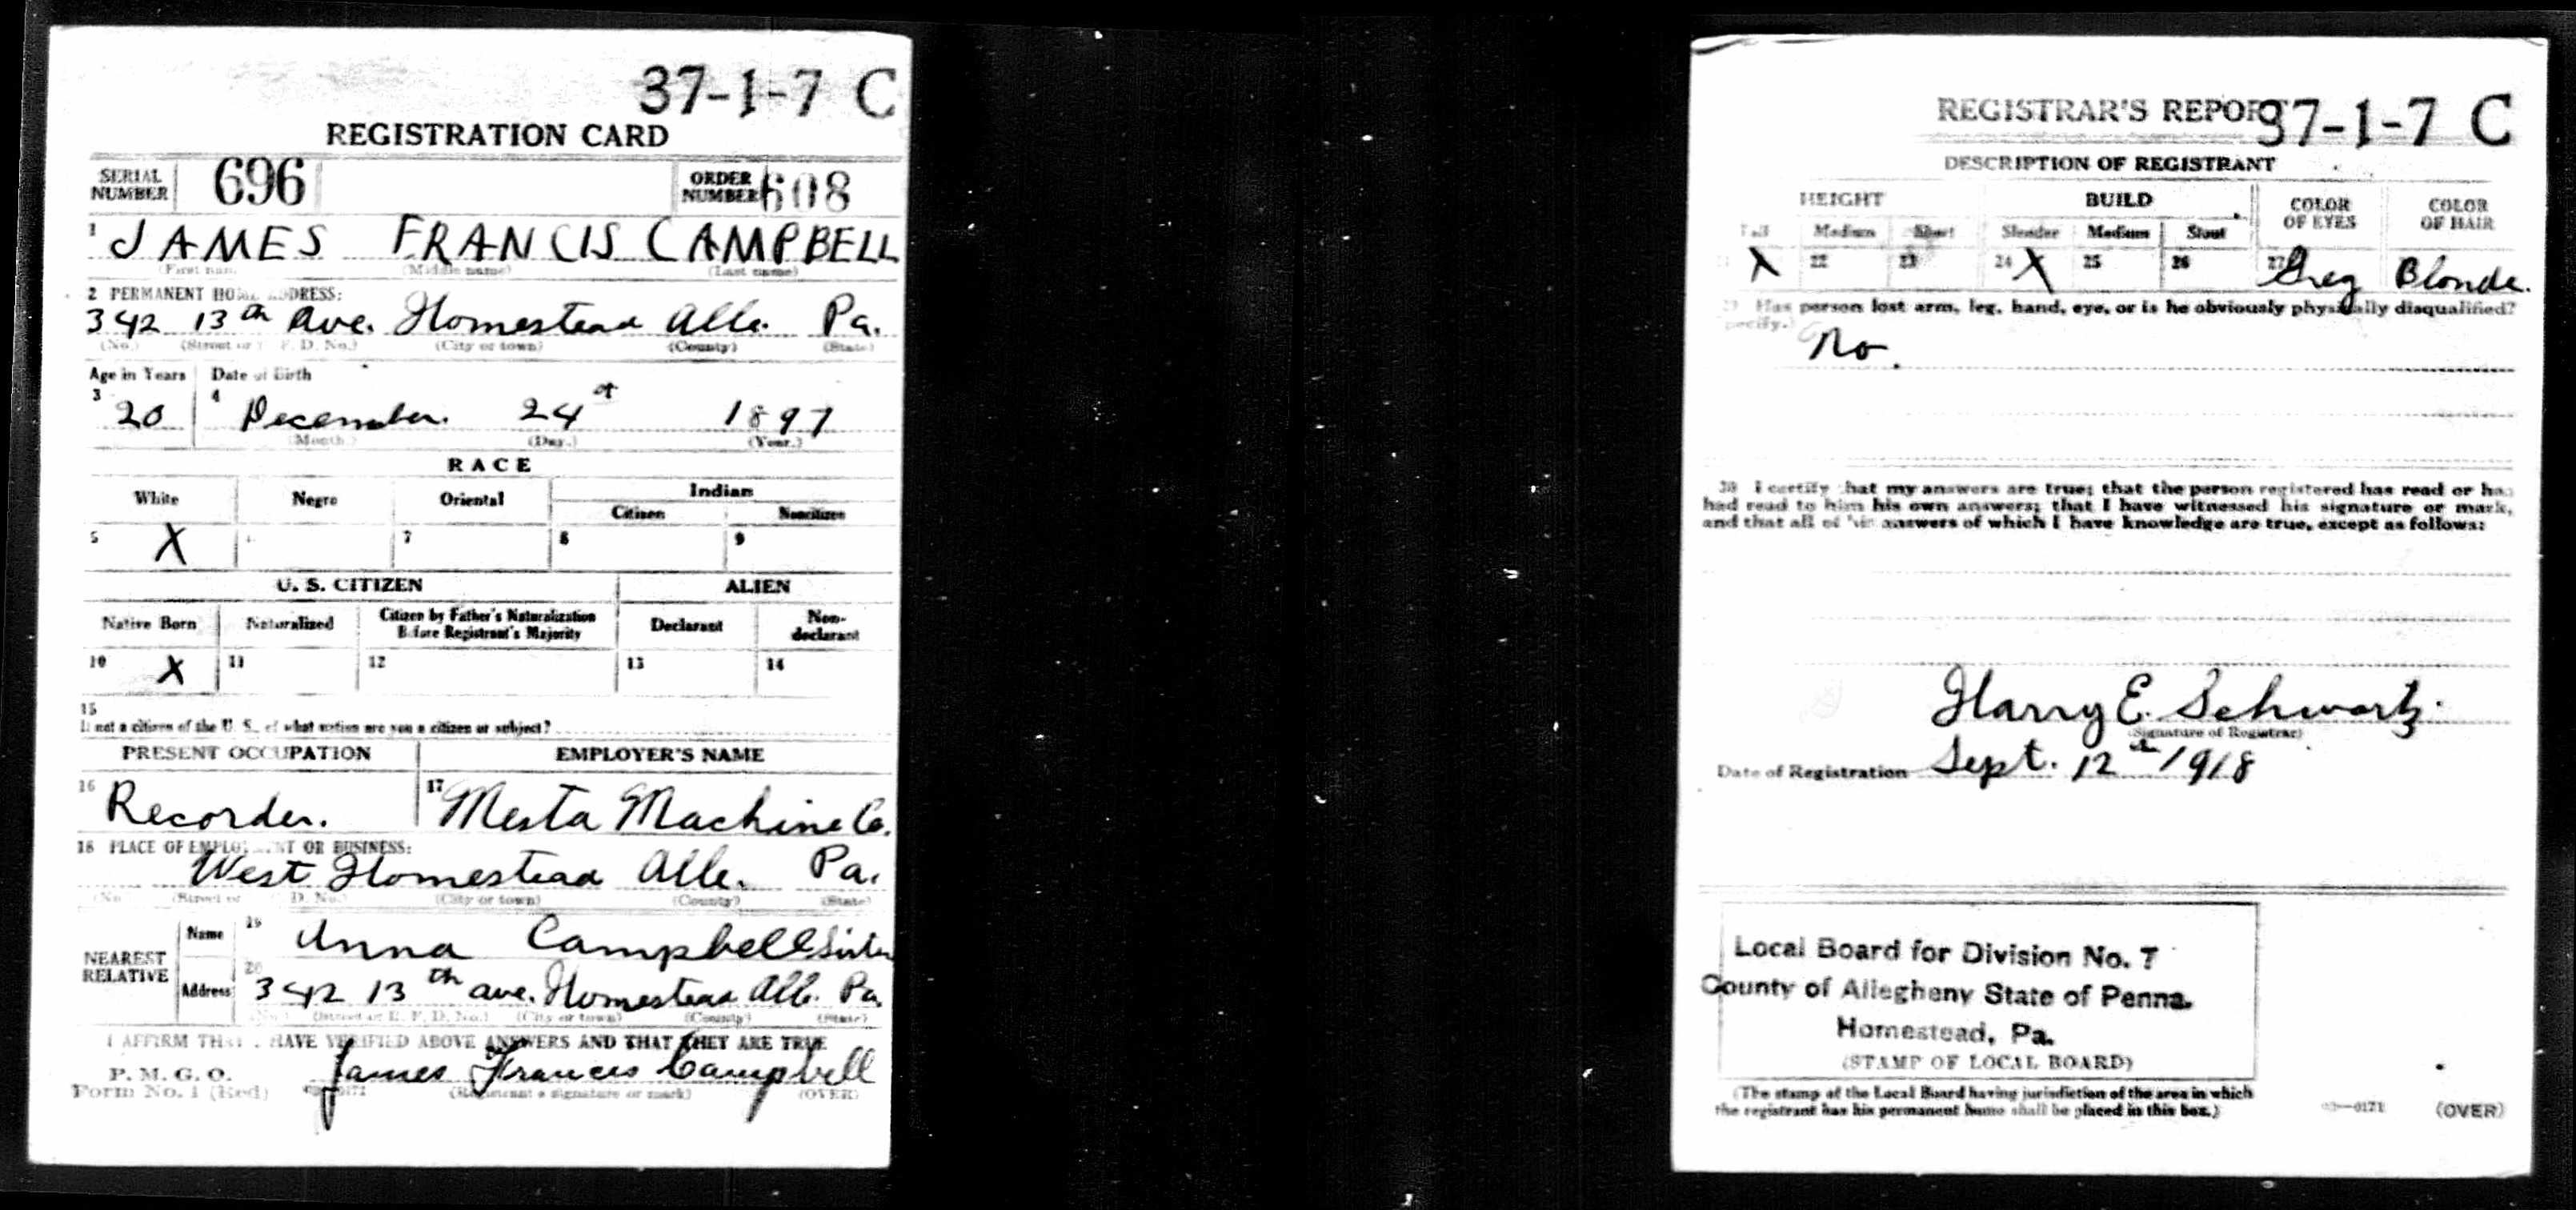 37-1-7 C
REGISTRATION CARD
SERIAL NUMBER 696 ORDER NUMBER 608
1 JAMES FRANCIS CAMPBELL
(First name) (Middle name) (Last name)
2 PERMANENT HOME ADDRESS:
342 13th Ave. Homestead Alle. Pa.
(No.) (Street or R. F. D. No.) (City or town) (County) (State)
Age in Years Date of Birth
3 20 4 December. 24 1897
(Month.) (Day.) (Year.)
RACE
White Negro Oriental Indian
Citizen Noncitizen
5 X 7 8 9
U. S. CITIZEN ALIEN
Native Born Naturalized Citizen by Father's Naturalization Before Registrant's Majority Declarant Non-declarant
10 X 11 12 13 14
15
If not a citizen of the U. S., of what nation are you a citizen or subject?
PRESENT OCCUPATION EMPLOYER'S NAME
16 Recorder. 17 Mesta Machine Co.
18 PLACE OF EMPLOYMENT OR BUSINESS:
West Homestead Alle. Pa.
(No.) (Street or R. F. D. No.) (City or town) (County) (State)
NEAREST RELATIVE Name 19 Anna Campbell Sister
Address 20 342 13th ave. Homestead All. Pa.
(No.) (Street or R. F. D. No.) (City or town) (County) (State)
I AFFIRM THAT I HAVE VERIFIED ABOVE ANSWERS AND THAT THEY ARE TRUE
P. M. G. O.
Form No. 1 (Red) James Francis Campbell
(Registrant's signature or mark) (OVER)
REGISTRAR'S REPORT 37-1-7 C
DESCRIPTION OF REGISTRANT
HEIGHT BUILD COLOR OF EYES COLOR OF HAIR
Tall Medium Short Slender Medium Stout
21 X 22 23 24 X 25 26 27 Grey Blonde.
29 Has person lost arm, leg, hand, eye, or is he obviously physically disqualified?
(Specify.)
No.
30 I certify that my answers are true; that the person registered has read or has
had read to him his own answers; that I have witnessed his signature or mark,
and that all of his answers of which I have knowledge are true, except as follows:
Harry E. Schwartz.
(Signature of Registrar)
Date of Registration Sept. 12th 1918
Local Board for Division No. 7
County of Allegheny State of Penna.
Homestead, Pa.
(STAMP OF LOCAL BOARD)
(The stamp of the Local Board having jurisdiction of the area in which
the registrant has his permanent home shall be placed in this box.)
03—6171 (OVER)